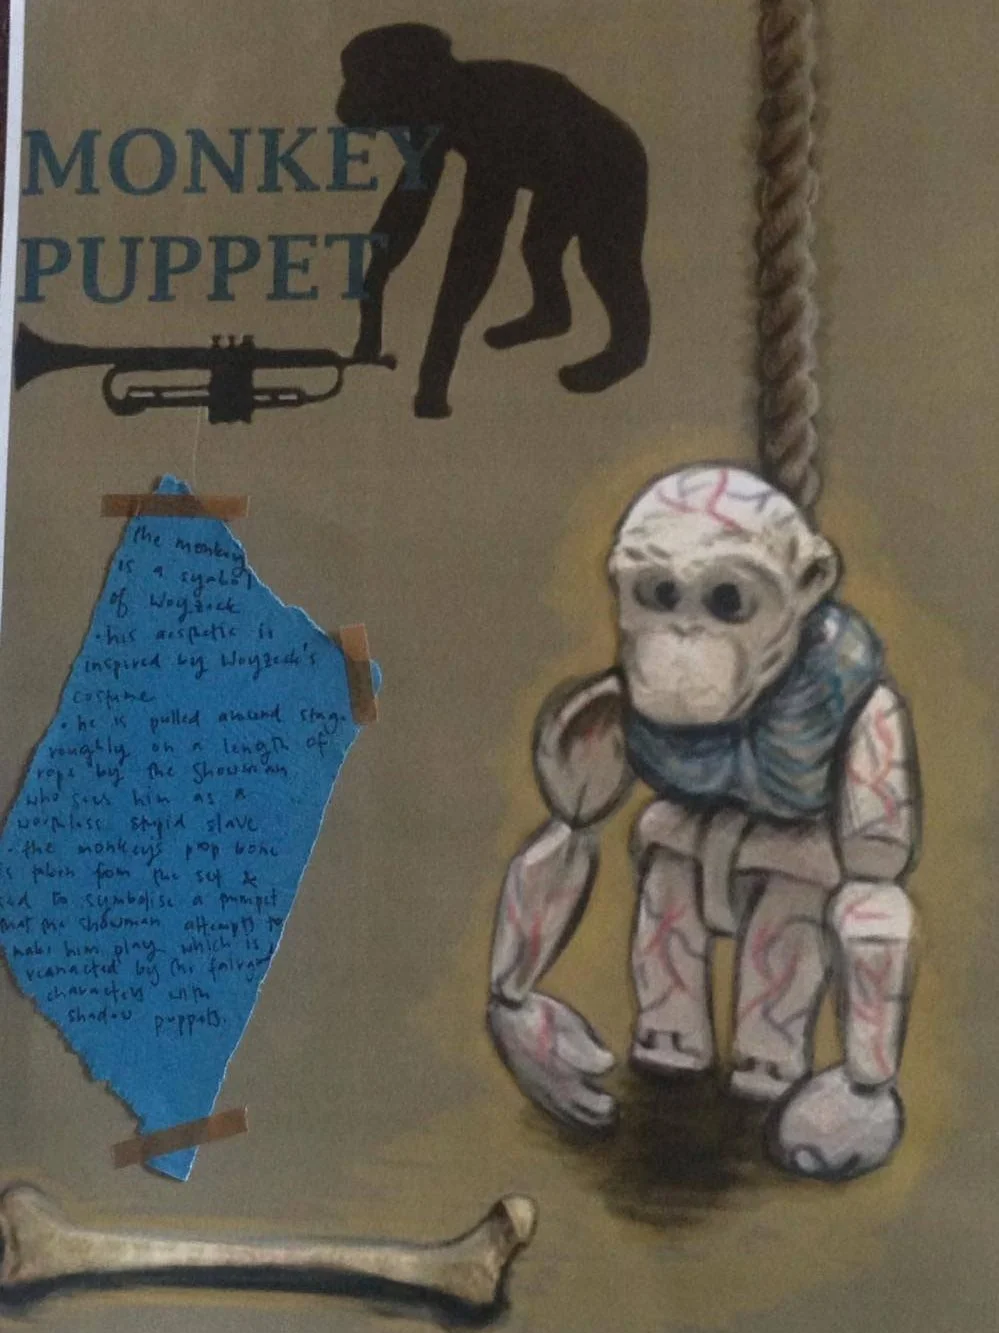 MONKEY
PUPPET
the monkey
is a symbol
of Woyzeck
• his aesthetic is
inspired by Woyzeck's
costume
• he is pulled around stage
roughly on a length of
rope by the Showman
who sees him as a
worthless stupid slave
• the monkeys prop bone
is taken from the set &
used to symbolise a trumpet
that the showman attempts to
make him play which is
reanacted by the fairground
characters with
shadow puppets.